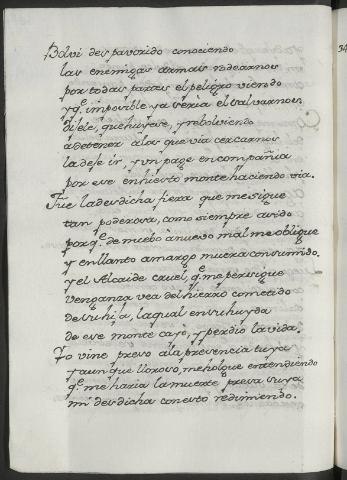 Bolvi despavorido conociendo
las enemigas armas rodearnos
por todas partes el peligro viendo
y q.e imposible ya seria el salvarnos.
dijele, que huyese, y rebolviendo
a detener a los que via cercarnos
la dese ir, y un page en compañia
por ese enhiesto monte haciendo via.
Fue la desdicha fiera que me sigue
tan poderosa, como siempre a sido
porq.e de nuebo à nuevo mal me obligue
y en llanto amargo muera consumido.
y el Alcaide cruel, q.e me persigue
venganza vea del hierro cometido
de su hija, la qual en su huyda
de ese monte cayò, y perdio la vida.
Yo vine preso à la presencia tuya
y aun que lloroso, me holgue entendiendo
q.e me haria la muerte presa suya
mi desdicha con esto redimiendo.
34